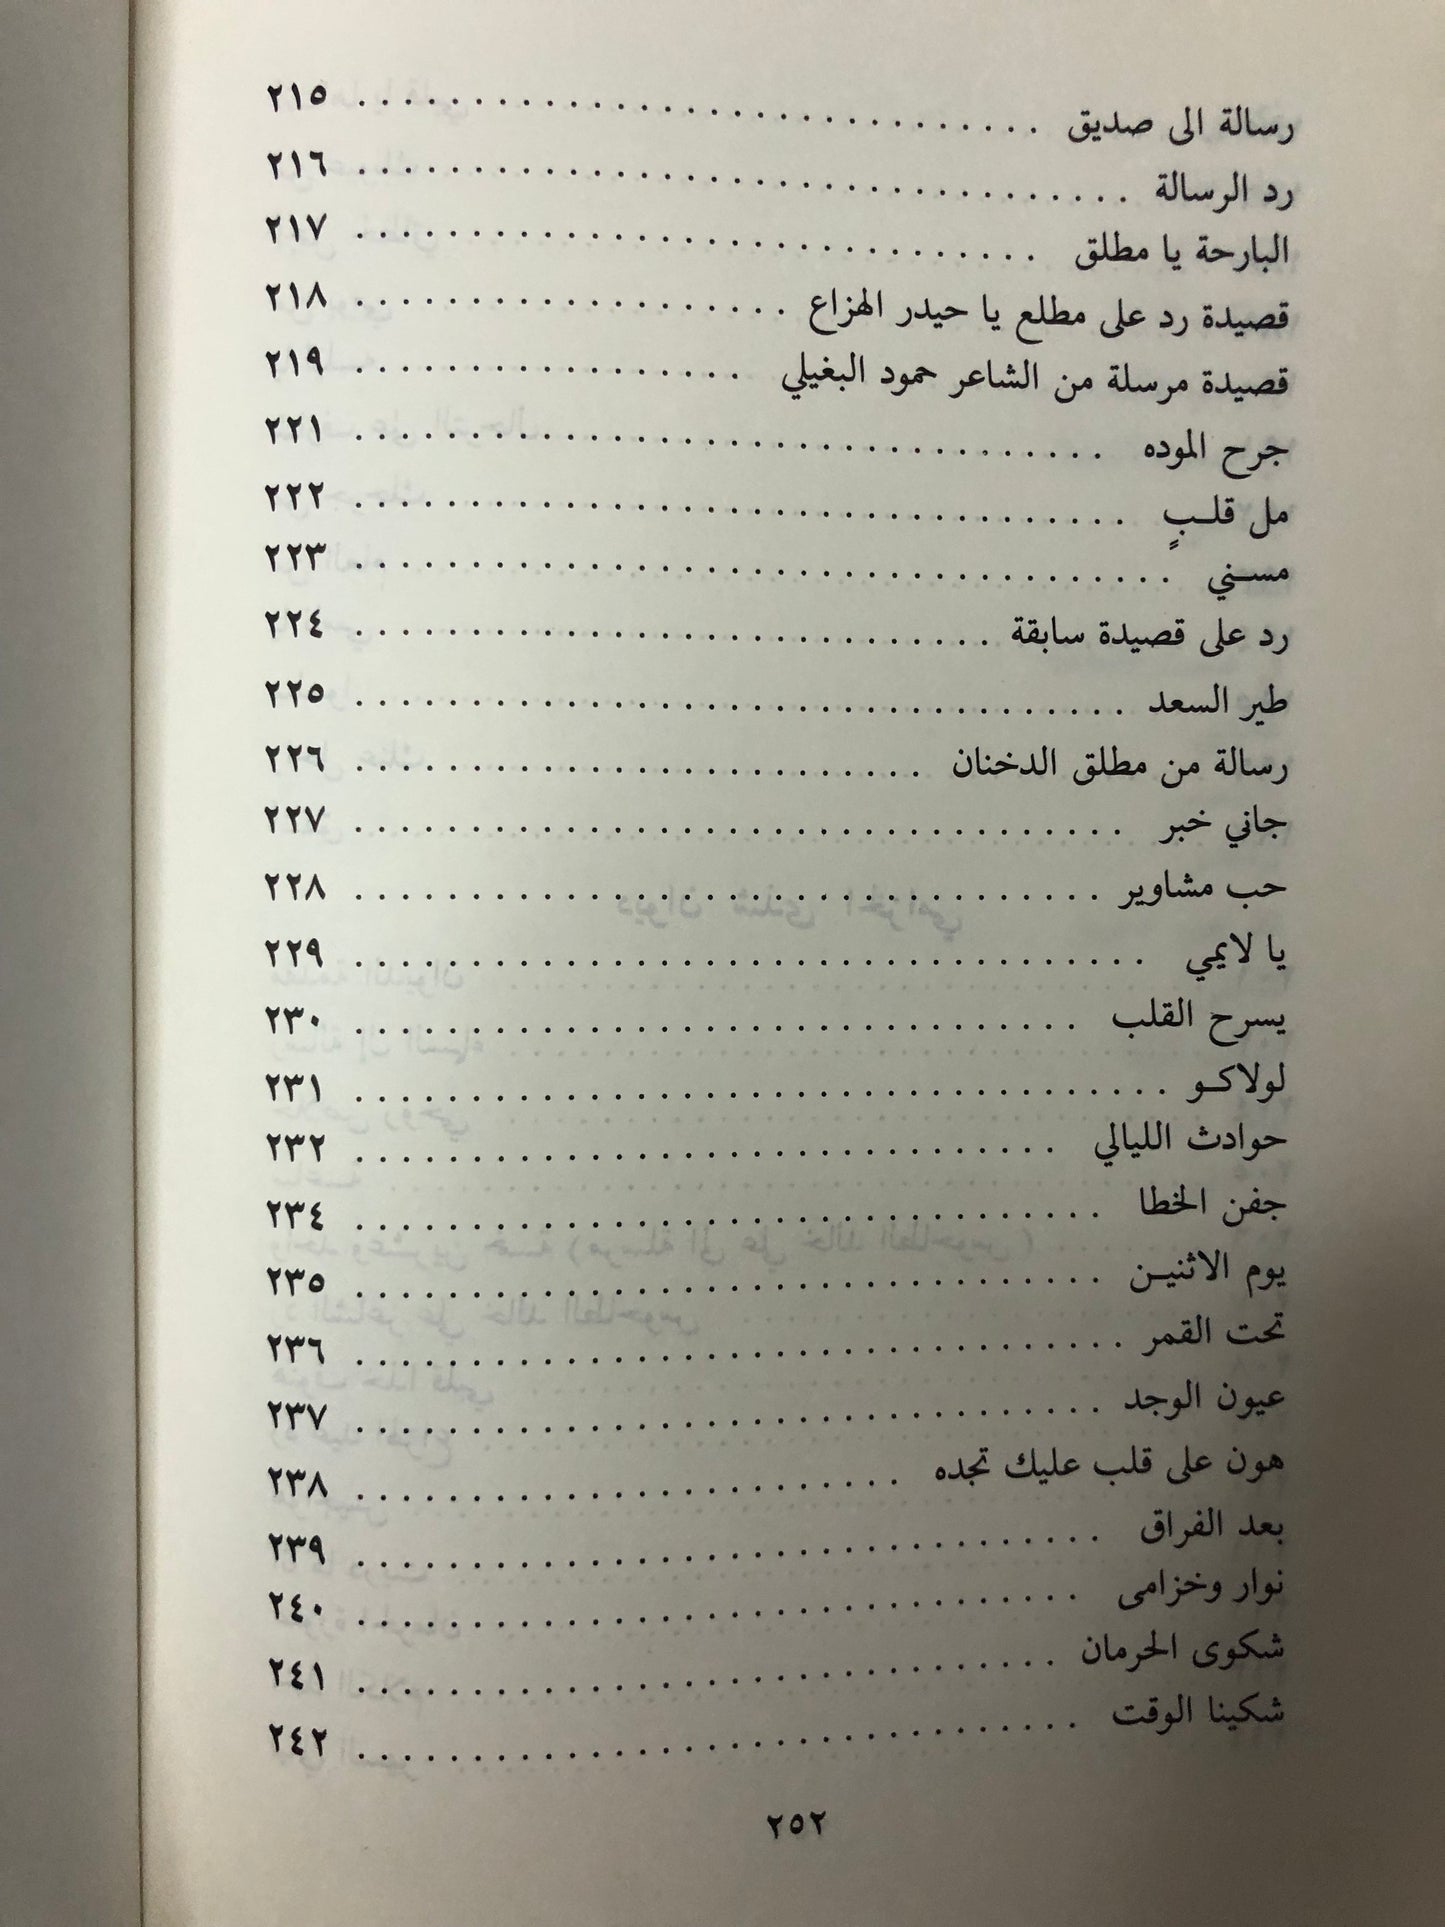 رسالة الى صديق . . . . . . . . . . . . . . . . . . . . . ٢١٥
رد الرسالة . . . . . . . . . . . . . . . . . . . . . ٢١٦
البارحة يا مطلق . . . . . . . . . . . . . . . . . . . . . ٢١٧
قصيدة رد على مطلع يا حيدر الهزاع . . . . . . . . . . . . . . . ٢١٨
قصيدة مرسلة من الشاعر حمود البغيلي . . . . . . . . . . . . . . . ٢١٩
جرح الموده . . . . . . . . . . . . . . . . . . . . . ٢٢١
مل قلـبٍ . . . . . . . . . . . . . . . . . . . . . ٢٢٢
مسـني . . . . . . . . . . . . . . . . . . . . . ٢٢٣
رد على قصيدة سابقة . . . . . . . . . . . . . . . . . . . . . ٢٢٤
طير السعد . . . . . . . . . . . . . . . . . . . . . ٢٢٥
رسالة من مطلق الدخنان . . . . . . . . . . . . . . . . . . ٢٢٦
جاني خبر . . . . . . . . . . . . . . . . . . . . . ٢٢٧
حب مشاوير . . . . . . . . . . . . . . . . . . . . . ٢٢٨
يا لايمي . . . . . . . . . . . . . . . . . . . . . ٢٢٩
يسرح القلب . . . . . . . . . . . . . . . . . . . . . ٢٣٠
لولاكـو . . . . . . . . . . . . . . . . . . . . . ٢٣١
حوادث الليالي . . . . . . . . . . . . . . . . . . . . . ٢٣٢
جفن الخطا . . . . . . . . . . . . . . . . . . . . . ٢٣٤
يوم الاثنيـن . . . . . . . . . . . . . . . . . . . . . ٢٣٥
تحت القمر . . . . . . . . . . . . . . . . . . . . . ٢٣٦
عيون الوجد . . . . . . . . . . . . . . . . . . . . . ٢٣٧
هون على قلب عليك تجده . . . . . . . . . . . . . . . . . . ٢٣٨
بعد الفراق . . . . . . . . . . . . . . . . . . . . . ٢٣٩
نوار وخزامى . . . . . . . . . . . . . . . . . . . . . ٢٤٠
شكوى الحرمان . . . . . . . . . . . . . . . . . . . . . ٢٤١
شكينا الوقت . . . . . . . . . . . . . . . . . . . . . ٢٤٢
٢٥٢